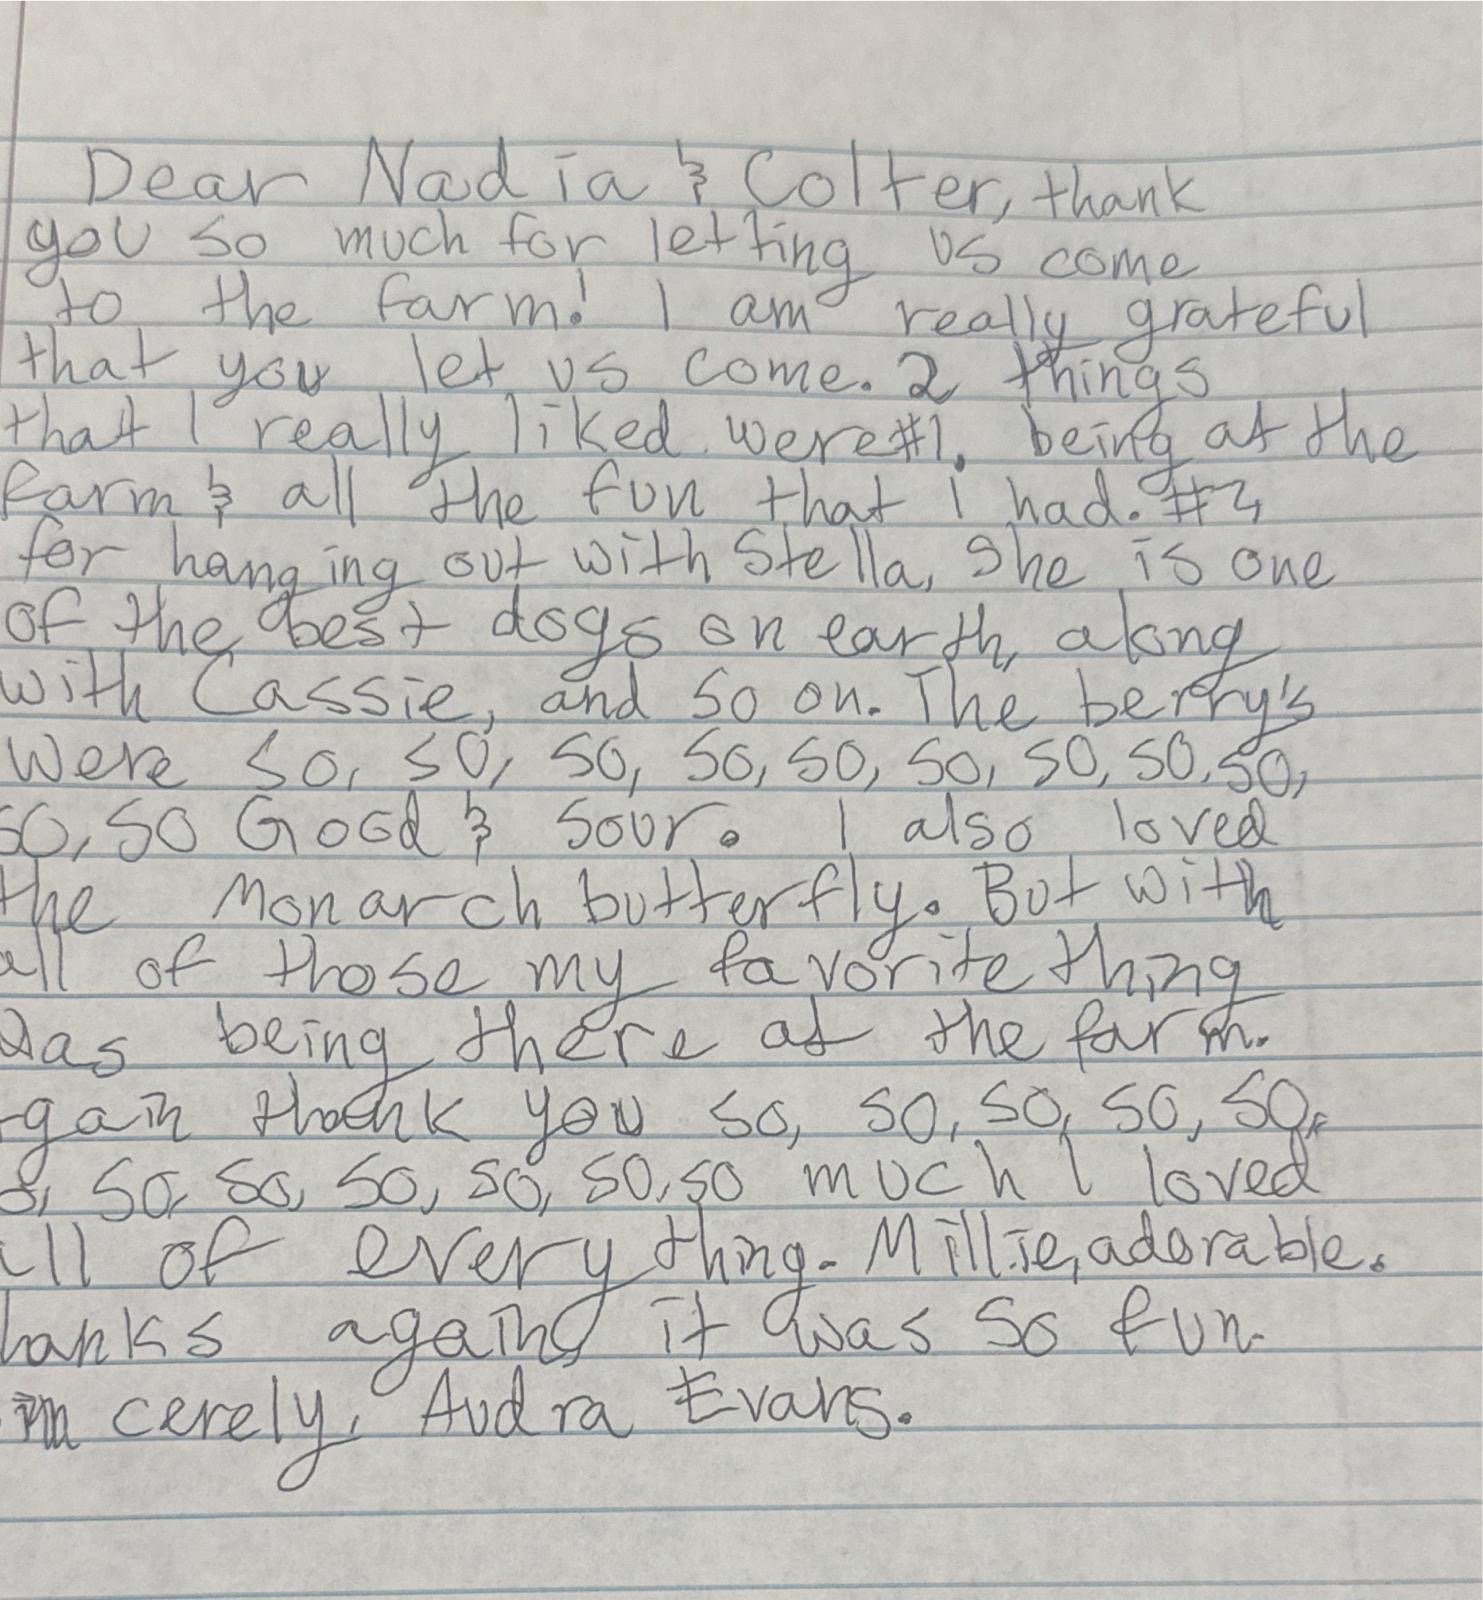 Dear Nadia & Colter, thank
you so much for letting us come
to the farm! I am really grateful
that you let us come. 2 things
that I really liked were #1, being at the
farm & all the fun that I had. #2
for hanging out with Stella, She is one
of the best dogs on earth, along
with Cassie, and so on. The berry's
Were so, so, so, so, so, so, so, so, so,
so, so Good & sour. I also loved
the Monarch butterfly. But with
all of those my favorite thing
Was being there at the farm.
gain thank you so, so, so, so, so,
so, so, so, so, so, so much I loved
all of every thing. Millie, adorable.
hanks again, it was so fun.
in cerely, Audra Evans.